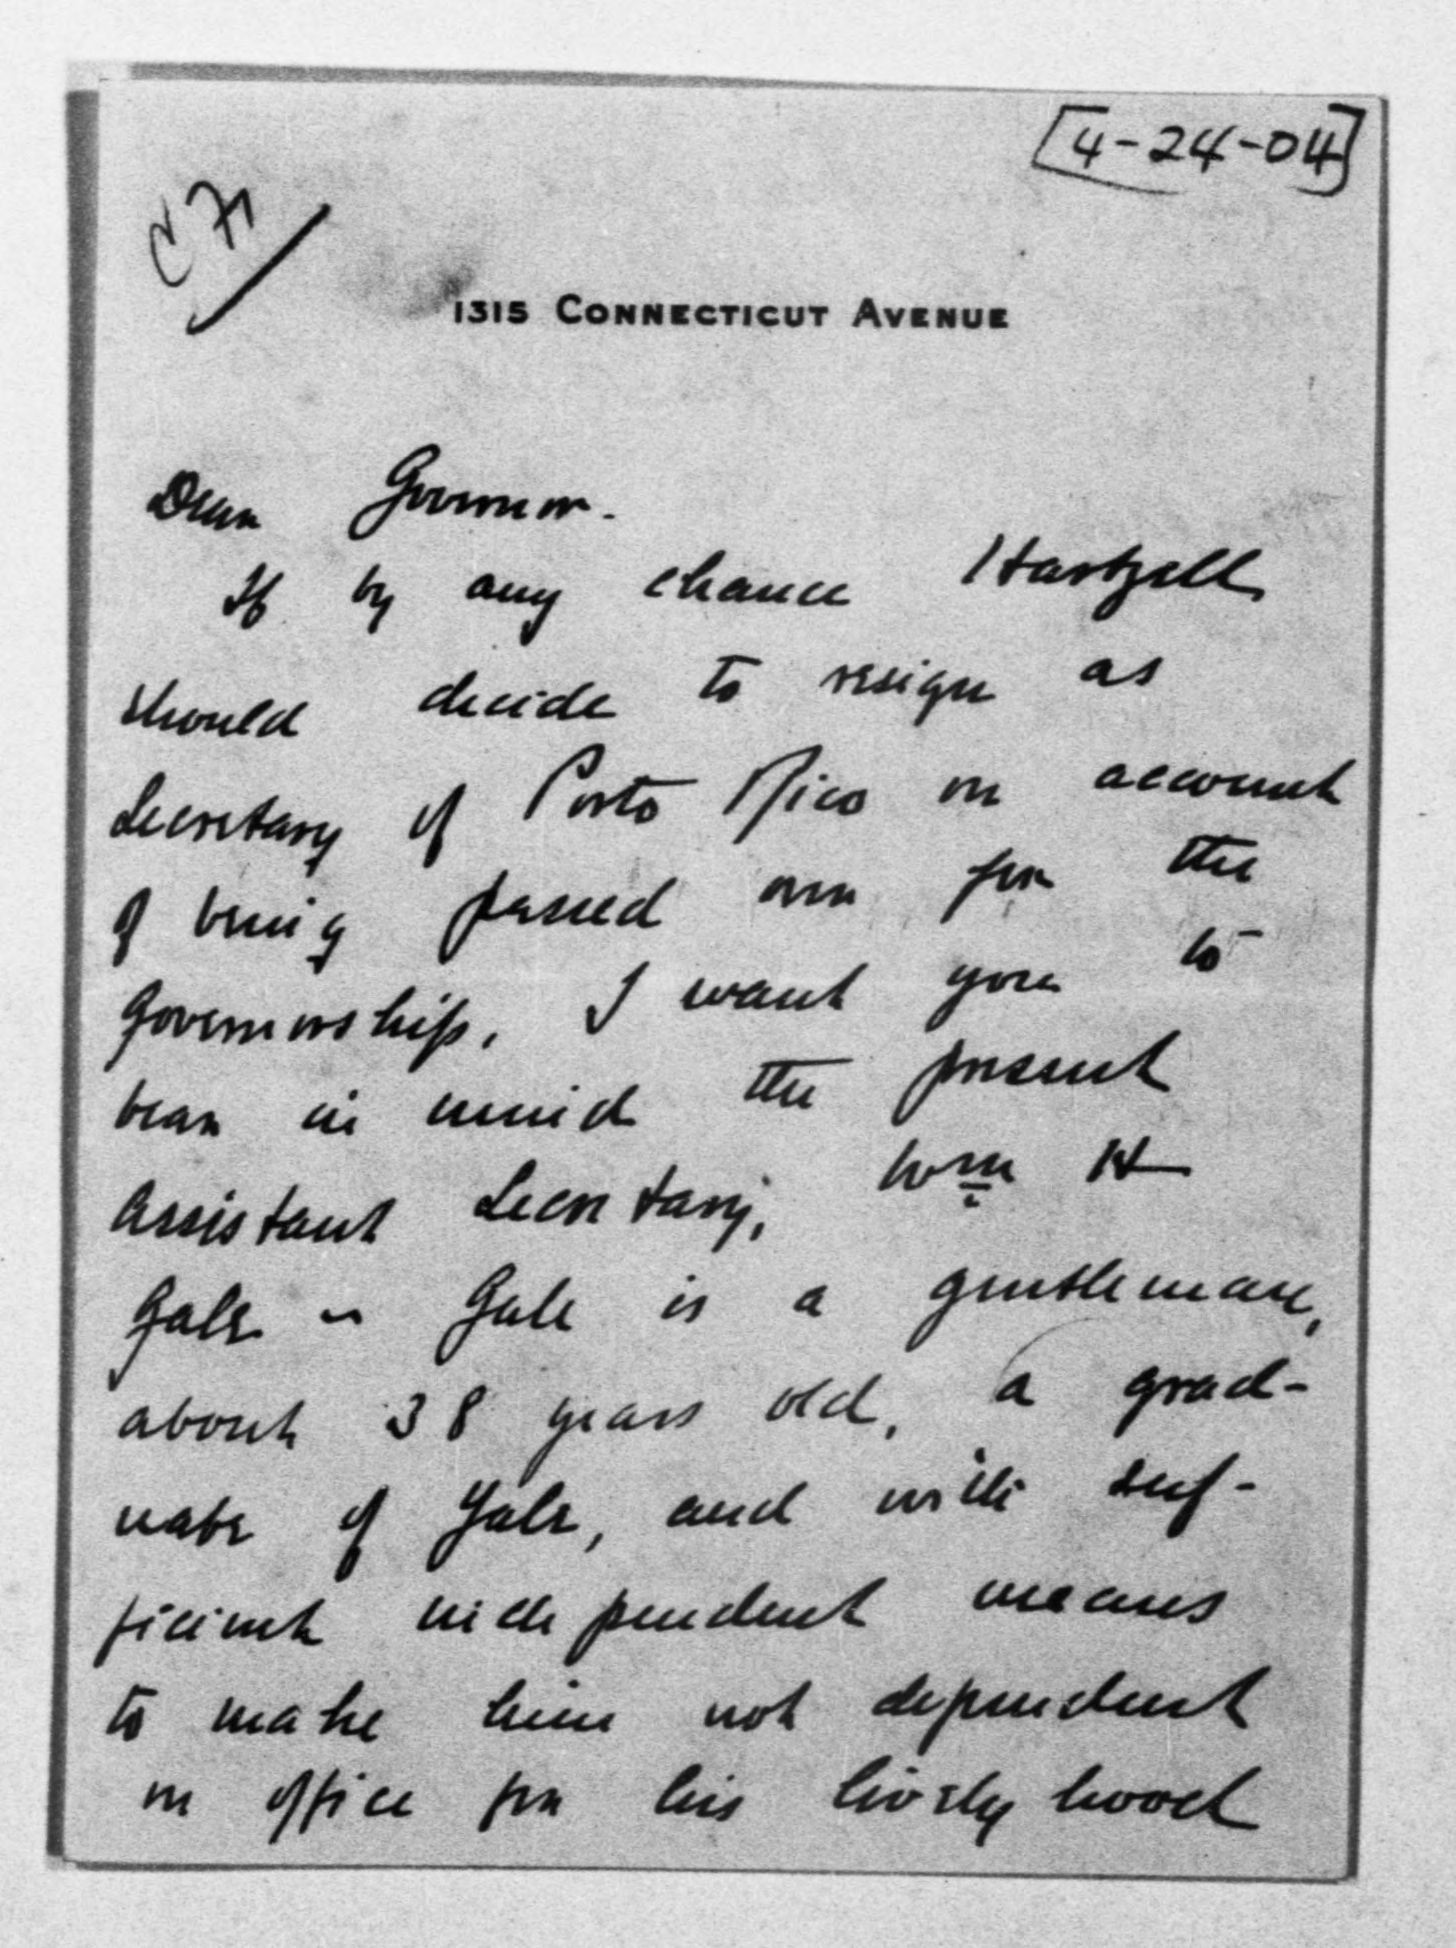 [4-24-04]
1315 CONNECTICUT AVENUE
Dear Governor.
If by any chance Hartzell
should decide to resign as
Secretary of Porto Rico on account
of being passed over for the
Governorship, I want you to
bear in mind the present
Assistant Secretary, Wm H
Gale - Gale is a gentleman,
about 38 years old, a grad-
uate of Yale, and with suf-
ficient independent means
to make him not dependent
on office for his livelyhood